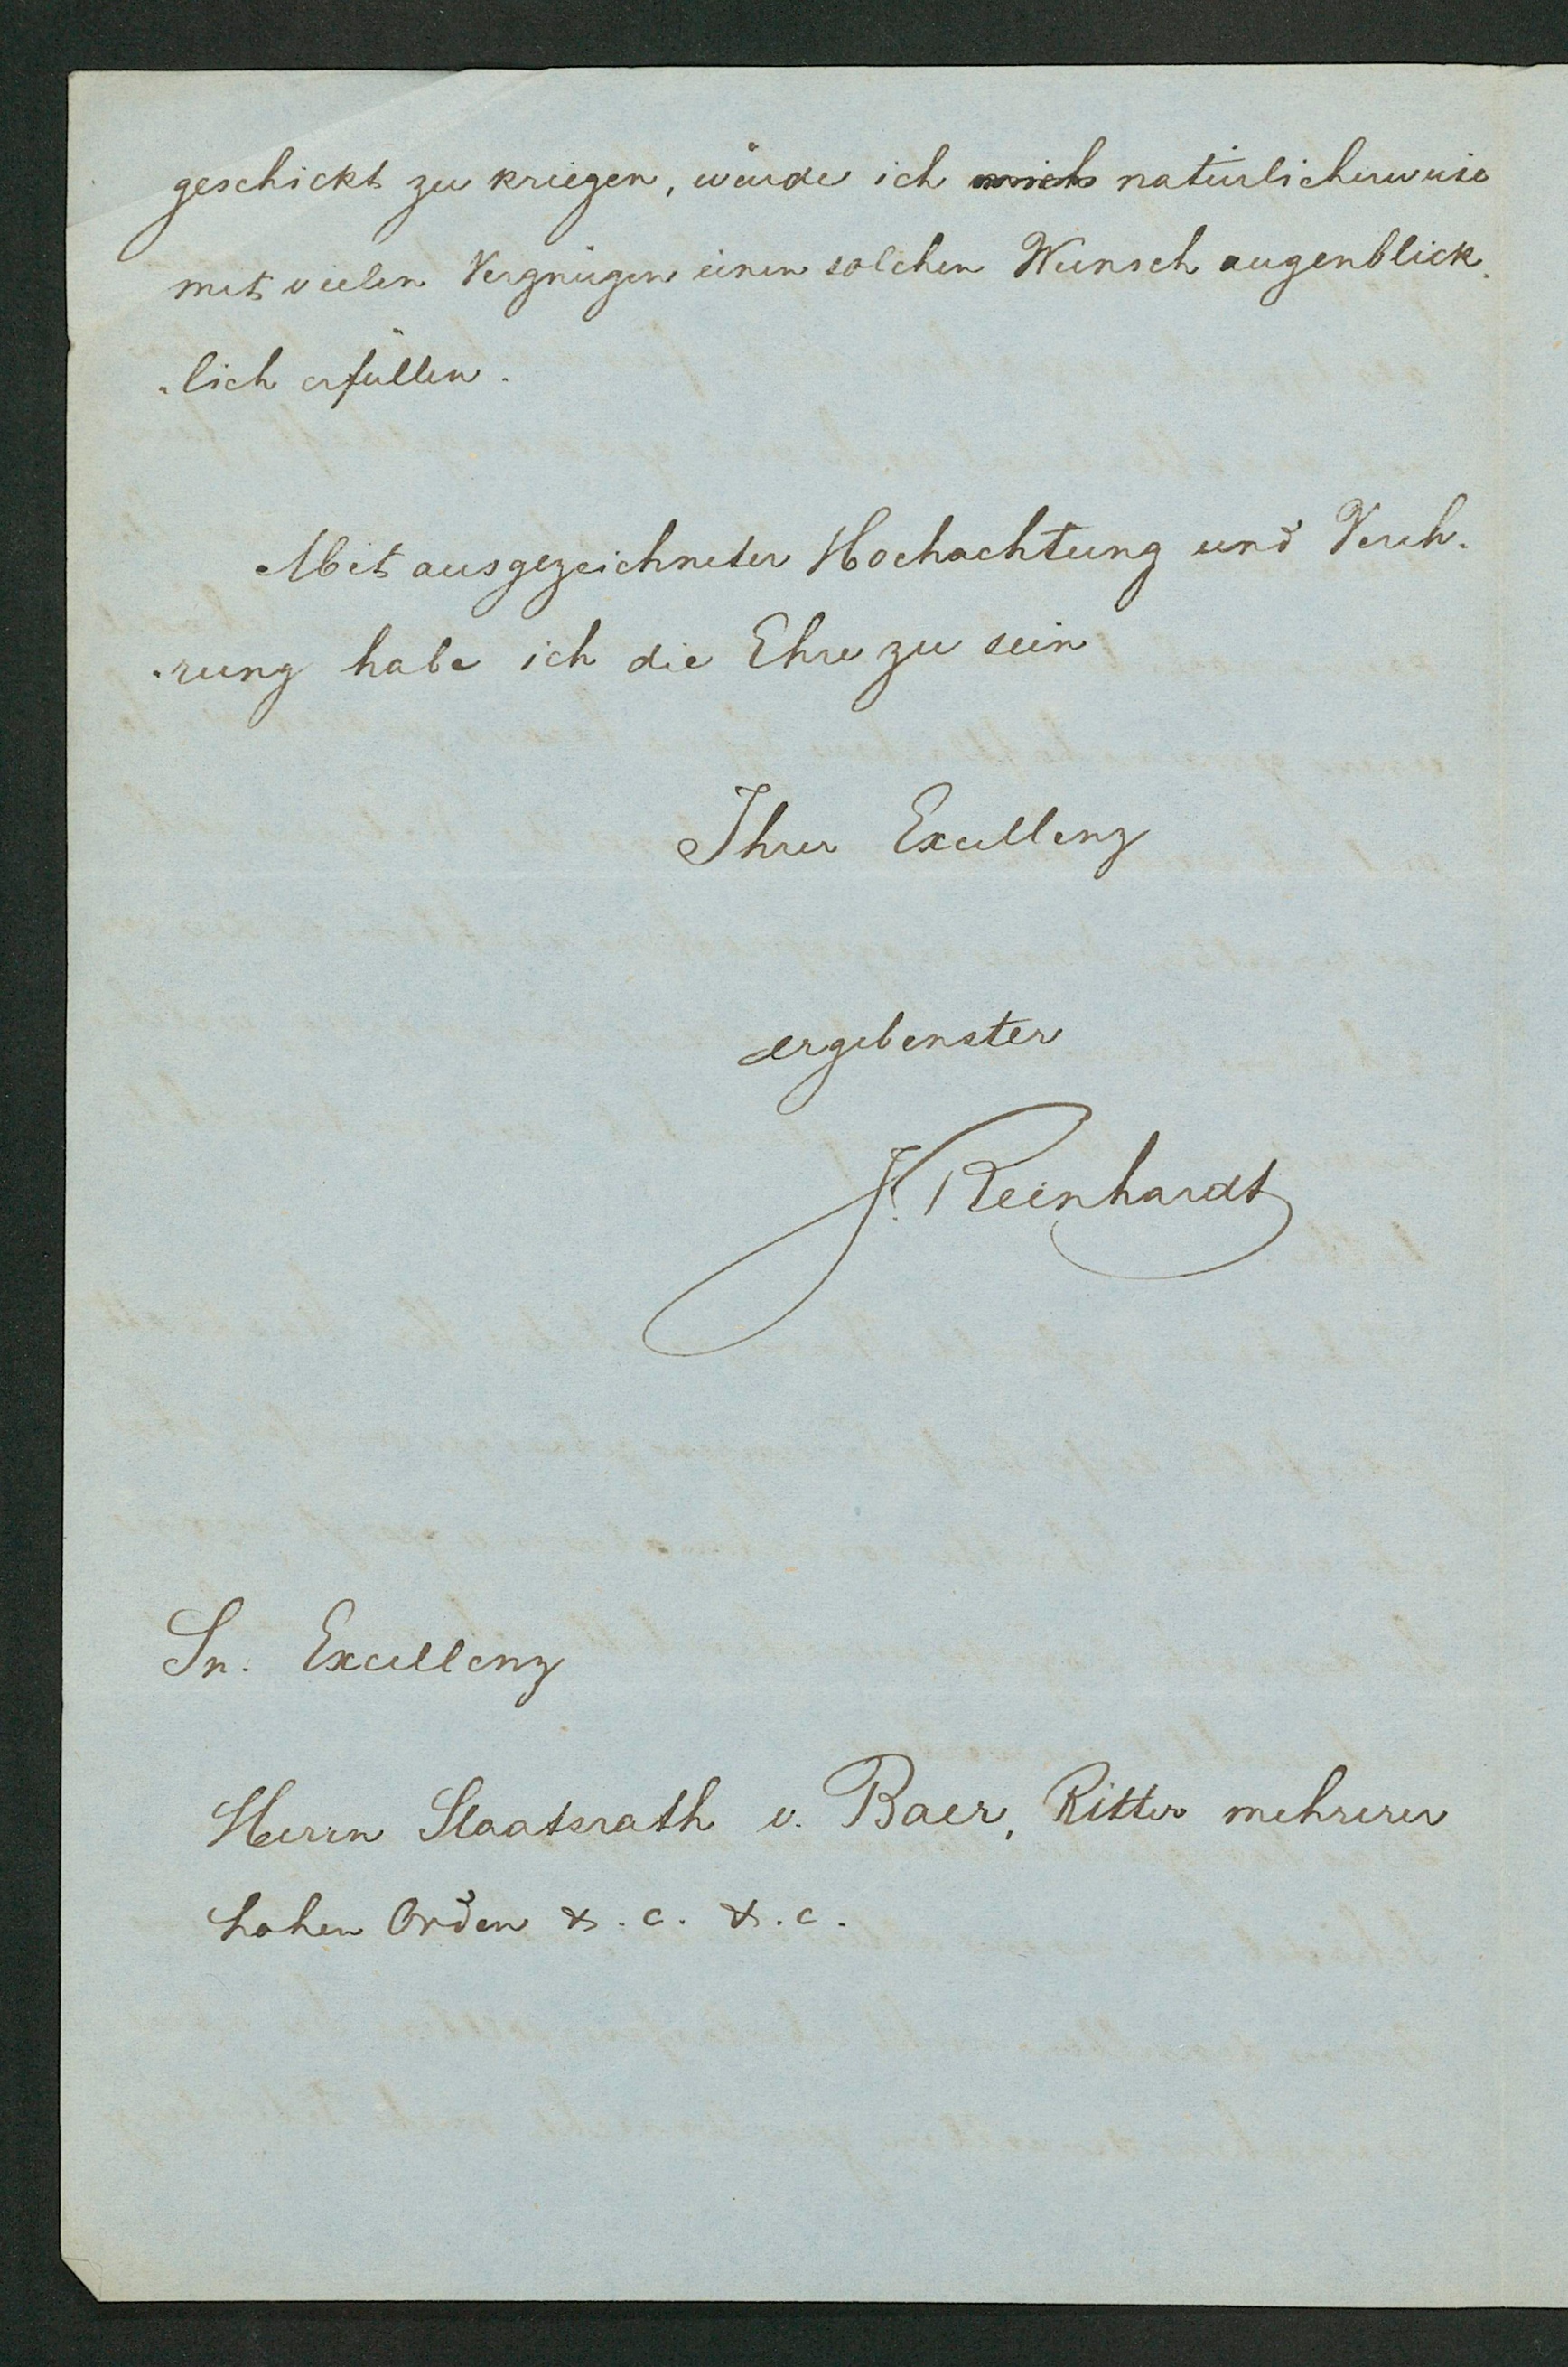 geschickt zu kriegen, würde ich mich natürlicherweise
mit vielen Vergnügen einen solchen Wunsch augenblick-
-lich erfüllen.
Mit ausgezeichneter Hochachtung und Vereh-
-rung habe ich die Ehre zu sein
Ihrer Excellenz
ergebenster
J. Reinhardt
Sn. Excellenz
Herrn Staatsrath v. Baer, Ritter mehrerer
hohen Orden &.c. &.c.